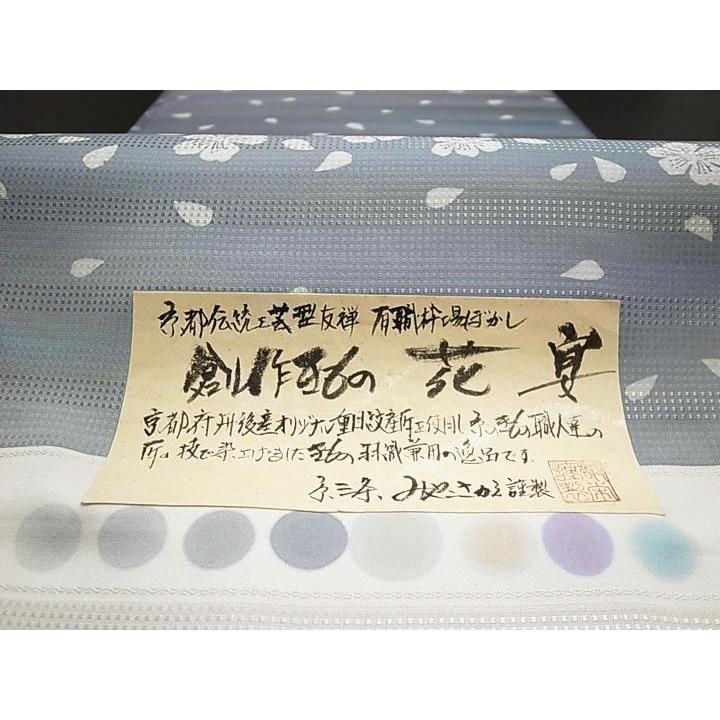 京都伝統工芸型友禅 有職枠場ぼかし
創作きもの 花宴
京都府丹後産オリジナル 使用し 京のきもの職人達の
技で染上げましたきもの羽織兼用の逸品です。
京三条 みやこさかえ謹製